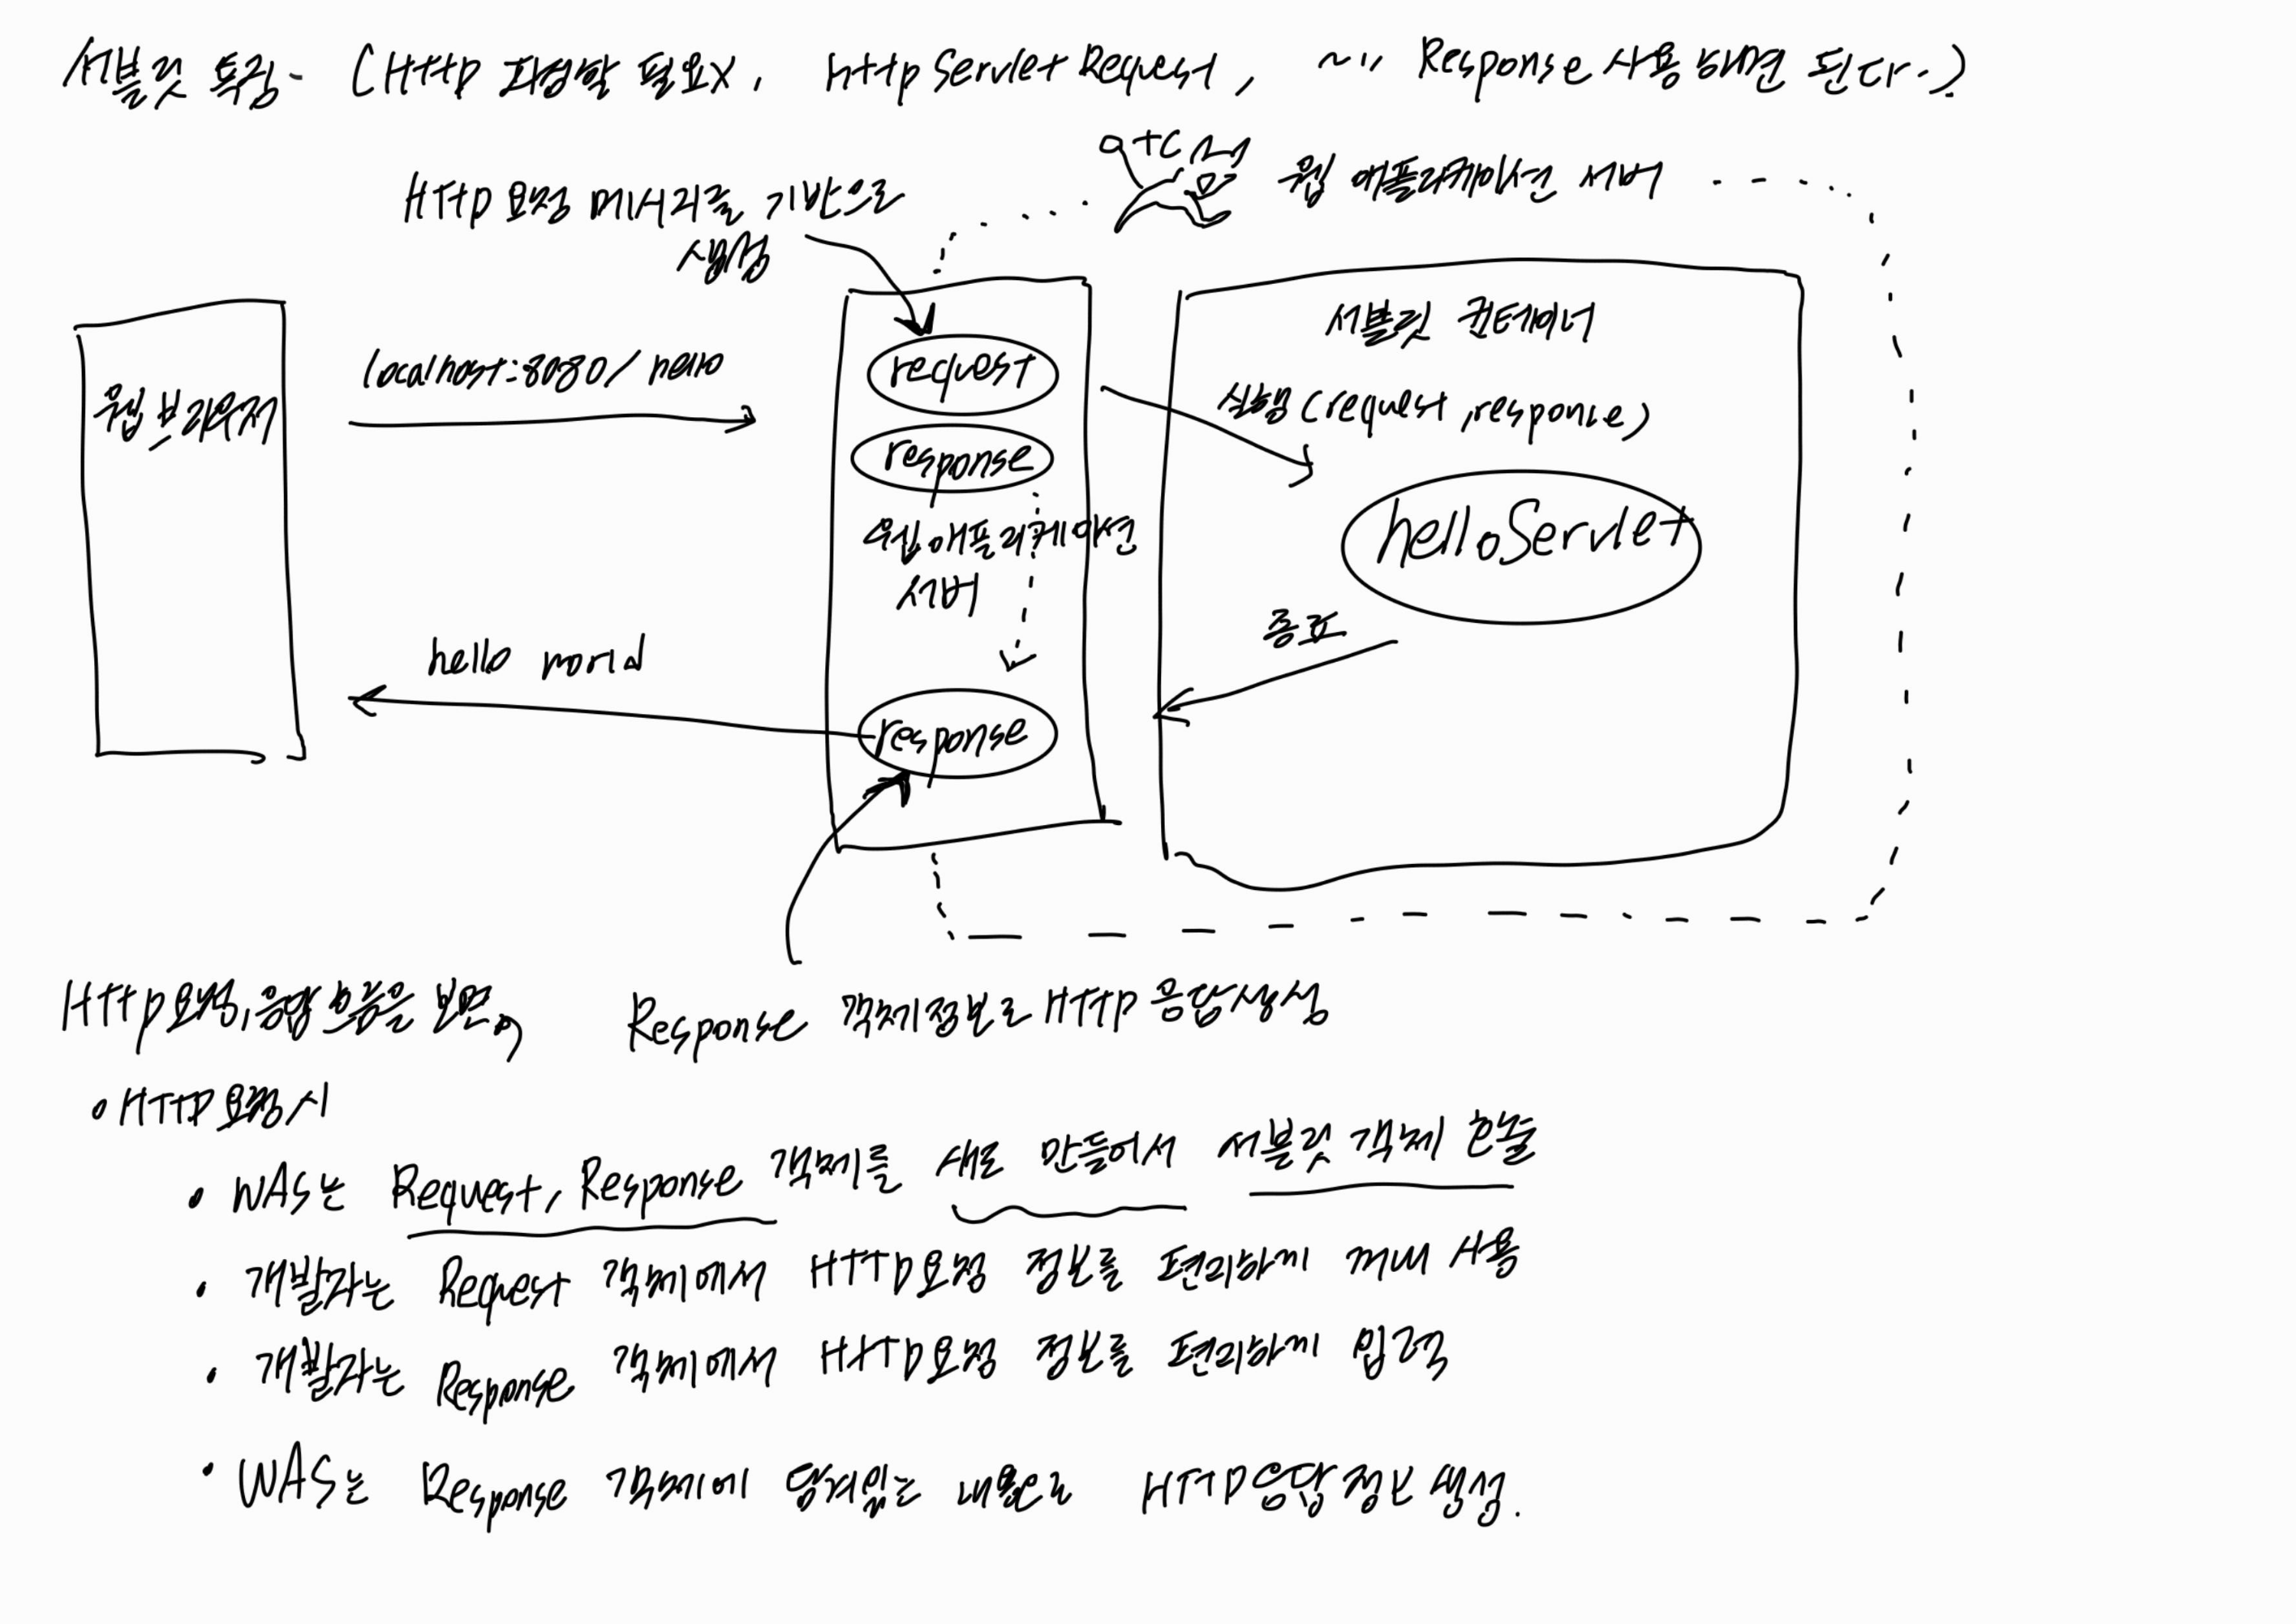 서블릿 특징 - (HTTP 파싱할 필요X, HttpServletRequest, ~" Response 사용하면 된다.)
웹 애플리케이션 서버
HTTP 요청 메시지를 기반으로
생성
서블릿 컨테이너
localhost:8080/hello
request
웹 브라우저
실행(request, response)
response
helloServlet
웹 애플리케이션
서버
종료
hello world
response
HTTP 요청, 응답 흐름을 보면,
Response 객체 정보로 HTTP 응답 생성
• HTTP 요청시
• WAS는 Request, Response 객체를 새로 만들어서 서블릿 객체 호출
• 개발자는 Request 객체에서 HTTP 요청 정보를 편리하게 꺼내 사용
• 개발자는 Response 객체에서 HTTP 요청 정보를 편리하게 입력
• WAS는 Response 객체에 담겨있는 내용으로 HTTP 응답 정보 생성.